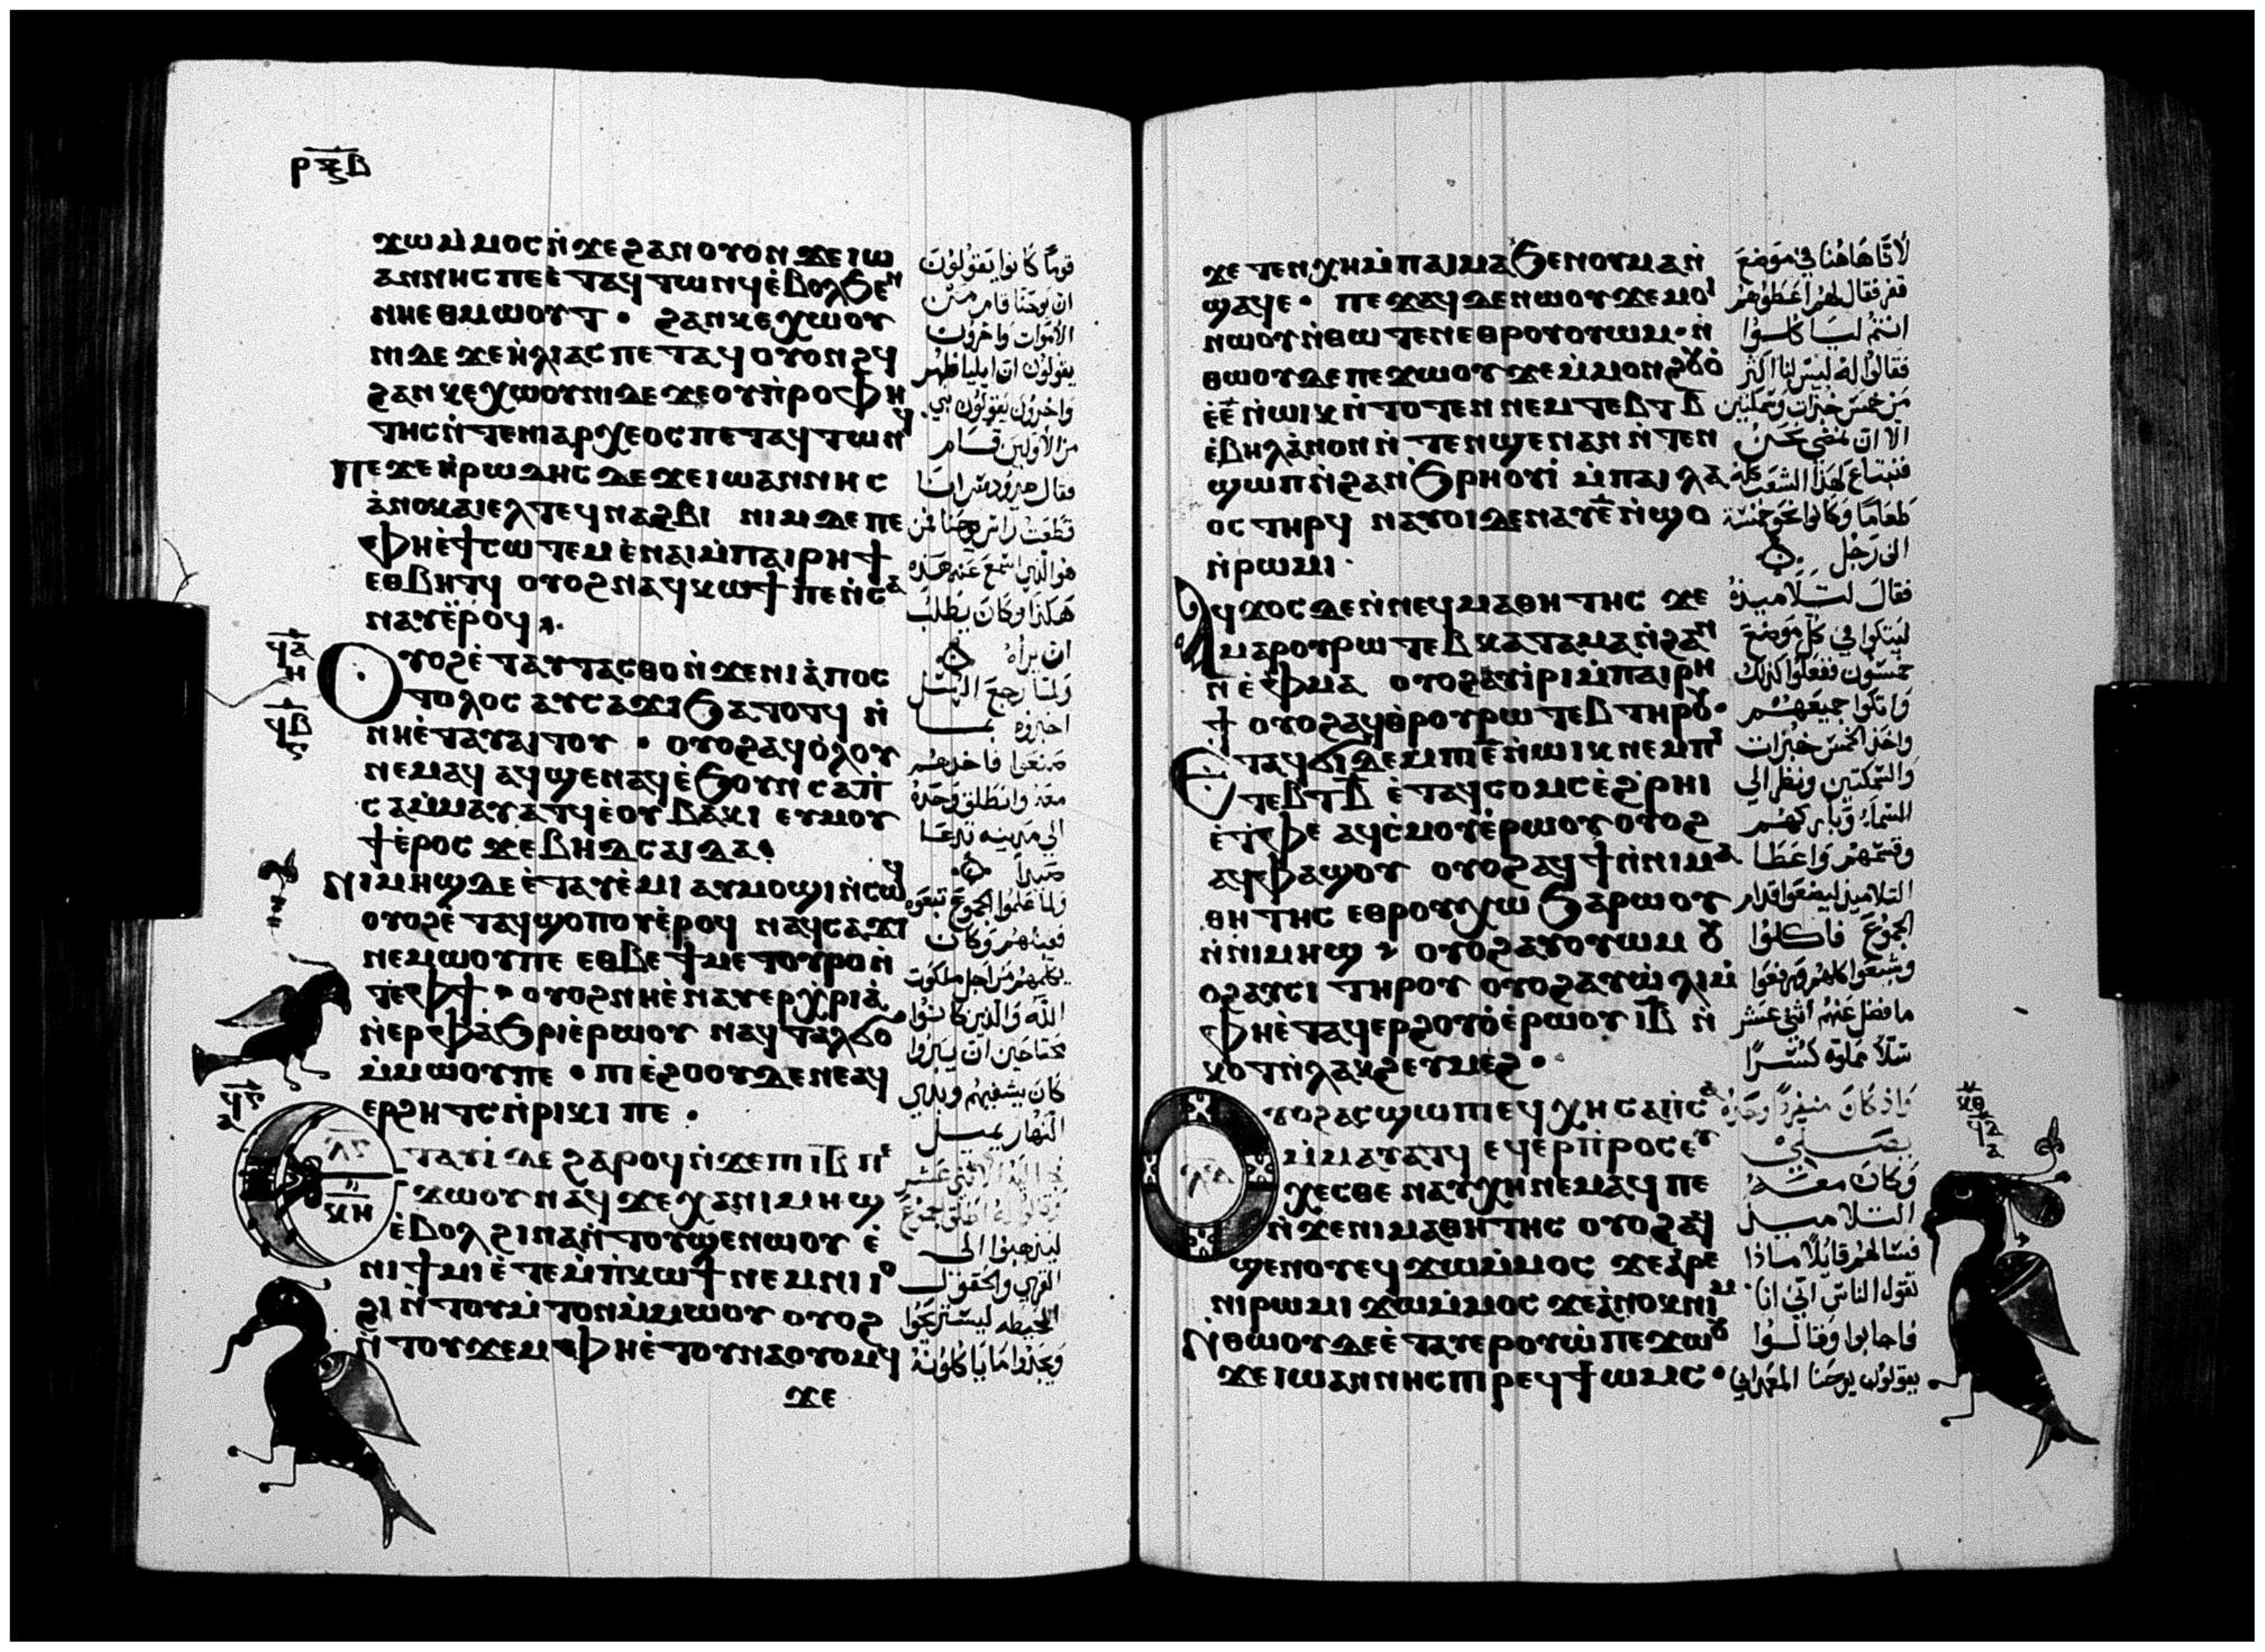 ⲣⲝⲃ
ϫⲱⲙ̀ⲙⲟⲥ ⲛ̀ϫⲉϩⲁⲛⲟⲩⲟⲛ ϫⲉⲓⲱ
ⲁⲛⲛⲏⲥ ⲡⲉ ⲉ̀ⲧⲁϥⲧⲱⲛϥ ⲉ̀ⲃⲟⲗϧⲉⲛ
ⲛⲏⲉⲑⲙⲱⲟⲩⲧ · ϩⲁⲛⲕⲉⲭⲱⲟⲩ
ⲛⲓ ⲇⲉ ϫⲉ ⲏ̀ⲗⲓⲁⲥ ⲡⲉⲧⲁϥⲟⲩⲟⲛϩϥ
ϩⲁⲛⲕⲉⲭⲱⲟⲩⲛⲓ ⲇⲉ ϫⲉ ⲟⲩⲡ̀ⲣⲟⲫⲏ
ⲧⲏⲥ ⲛ̀ⲧⲉⲛⲓⲁⲣⲭⲉⲟⲥ ⲡⲉⲧⲁϥⲧⲱⲛϥ
ⲡⲉϫⲉ ⲏ̀ⲣⲱⲇⲏⲥ ⲇⲉ ϫⲉ ⲓⲱⲁⲛⲛⲏⲥ
ⲁ̀ⲛⲟⲕ ⲁⲓⲉⲗ ⲧⲉϥⲛⲁϩⲃⲓ ⲛⲓⲙ ⲇⲉ ⲡⲉ
ⲫⲏⲉ̀ϯⲥⲱⲧⲉⲙ ⲉ̀ⲛⲁⲓ ⲙ̀ⲡⲁⲓⲣⲏϯ
ⲉⲑⲃⲏⲧϥ ⲟⲩⲟϩ ⲛⲁϥⲕⲱϯ ⲡⲉ ⲛ̀ⲥⲁ
ⲛⲁⲩ ⲉ̀ⲣⲟϥ
ϥⲁ
ⲏ
ϥⲃ
ⲟⲩⲟϩ ⲉ̀ⲧⲁⲩⲧⲁⲥⲑⲟ ⲛ̀ϫⲉⲛⲓⲁ̀ⲡⲟⲥ
ⲧⲟⲗⲟⲥ ⲁⲩⲥⲁϫⲓ ϧⲁⲧⲟⲧϥ ⲛ̀
ⲛⲏⲉ̀ⲧⲁⲩⲁⲓⲧⲟⲩ · ⲟⲩⲟϩ ⲁϥⲟ̀ⲗⲟⲩ
ⲛⲉⲙⲁϥ ⲁϥϣⲉⲛⲁϥ ⲉ̀ϧⲟⲩⲛ ⲥⲁⲡ̀
ⲥⲁ ⲙ̀ⲙⲁⲩⲁⲧϥ ⲉ̀ⲟⲩⲃⲁⲕⲓ ⲉⲩⲙⲟⲩ
ϯ ⲉ̀ⲣⲟⲥ ϫⲉ ⲃⲏⲇⲥⲁⲓⲇⲁ
ⲛⲓⲙⲏϣ ⲇⲉ ⲉ̀ⲧⲁⲩⲉ̀ⲙⲓ ⲁⲩⲙⲟϣⲓ ⲛ̀ⲥⲱϥ
ⲟⲩⲟϩ ⲉ̀ⲧⲁϥϣⲟⲡⲟⲩ ⲉ̀ⲣⲟϥ ⲛⲁϥⲥⲁϫⲓ
ⲛⲉⲙⲱⲟⲩ ⲡⲉ ⲉⲑⲃⲉ ϯⲙⲉⲧⲟⲩⲣⲟ ⲛ̀
ⲧⲉⲫϯ · ⲟⲩⲟϩ ⲛⲏⲉ̀ⲛⲁⲩⲉⲣⲭ̀ⲣⲓⲁ
ⲛ̀ⲉⲣⲫⲁϧⲣⲓ ⲉ̀ⲣⲱⲟⲩ ⲛⲁϥⲧⲁⲗϭⲟ
ⲙ̀ⲙⲱⲟⲩ ⲡⲉ · ⲡⲓⲉ̀ϩⲟⲟⲩ ⲇⲉ ⲛⲉⲁϥ
ⲉⲣϩⲏⲧⲥ ⲛ̀ⲣⲓⲕⲓ ⲡⲉ ·
ⲉⲧⲁⲩⲓ̀ ⲇⲉ ϩⲁⲣⲟϥ ⲛ̀ϫⲉⲡⲓⲓⲃ ⲡⲉ
ϫⲱⲟⲩ ⲛⲁϥ ϫⲉ ⲭⲁ ⲛⲓⲙⲏϣ
ⲉ̀ⲃⲟⲗ ϩⲓⲛⲁ ⲛ̀ⲧⲟⲩϣⲉⲛⲱⲟⲩ ⲉ̀
ⲛⲓϯⲙⲓ ⲉ̀ⲧⲉⲙ̀ⲡ̀ⲕⲱϯ ⲛⲉⲙ ⲛⲓⲓⲟ
ϩⲓ ⲛ̀ⲧⲟⲩⲙ̀ⲧⲟⲛ ⲙ̀ⲙⲱⲟⲩ ⲟⲩⲟϩ
ⲛ̀ⲧⲟⲩϫⲉⲙ ⲫⲏⲉ̀ⲧⲟⲩⲛⲁⲟⲩⲟⲙϥ
ϫⲉ
قومًا كانوا يقولون
ان يوحنا قام من
الأموات واخرون
يقولون ان ايليا ظهر
واخرون يقولون نبي
من الأولين قام
فقال هيرودس انا
قطعت راس يوحنا فمن
هو الذي اسمع عنه هذه
هكذا وكان يطلب
ان يراه
ولما رجع الرسل
اخبروه بما
صنعوا فاخذهم
معه وانطلق وحده
الي مدينه تدعا
صيدا
ولما علموا الجموع تبعوه
فقبلهم وكان
يكلمهم من اجل ملكوت
الله والذين كانوا
محتاجين ان يبروا
كان يشفيهم وبدي
النهار يميل
ليذهبوا الي
القري والحقول
المحيطه ليستريحوا
ويجدوا ما ياكلونه
ϫⲉ ⲧⲉⲛⲭⲏ ⲙ̀ⲡⲁⲓⲙⲁ ϧⲉⲛ ⲟⲩⲙⲁ ⲛ̀
ϣⲁϥⲉ · ⲡⲉϫⲁϥ ⲇⲉ ⲛⲱⲟⲩ ϫⲉ ⲙⲟⲓ
ⲛⲱⲟⲩ ⲛ̀ⲑⲱⲧⲉⲛ ⲉⲑⲣⲟⲩⲟⲩⲱⲙ · ⲛ̀
ⲑⲱⲟⲩ ⲇⲉ ⲡⲉϫⲱⲟⲩ ϫⲉ ⲙ̀ⲙⲟⲛ ϩⲟⲩⲟ̀
ⲉ̀ⲉ̄ ⲛ̀ⲱⲓⲕ ⲛ̀ⲧⲟⲧⲉⲛ ⲛⲉⲙ ⲧⲉⲃⲧ ⲃ̄
ⲉ̀ⲃⲏⲗ ⲁ̀ⲛⲟⲛ ⲛ̀ⲧⲉⲛϣⲉⲛⲁⲛ ⲛ̀ⲧⲉⲛ
ϣⲱⲡ ⲛ̀ϩⲁⲛϧⲣⲏⲟⲩⲓ̀ ⲙ̀ⲡⲁⲓⲗⲁ
ⲟⲥ ⲧⲏⲣϥ ⲛⲁⲩⲟⲓ ⲇⲉ ⲛⲁⲩ ⲉ̄ ⲛ̀ϣⲟ
ⲛ̀ⲣⲱⲙⲓ ·
ⲁϥϫⲟⲥ ⲇⲉ ⲛ̀ⲛⲉϥⲙⲁⲑⲏⲧⲏⲥ ϫⲉ
ⲙⲁⲣⲟⲩⲣⲱⲧⲉⲃ ⲕⲁⲧⲁ ⲙⲁ ⲛ̀ϩⲁⲛ
ⲛ̄ ⲉ̀ⲫⲙⲁ ⲟⲩⲟϩ ⲁⲩⲓ̀ⲣⲓ ⲙ̀ⲡⲁⲓⲣⲏ
ϯ ⲟⲩⲟϩ ⲁϥⲑ̀ⲣⲟⲩⲣⲱⲧⲉⲃ ⲧⲏⲣⲟⲩ ·
ⲉⲧⲁϥϭⲓ ⲇⲉ ⲙ̀ⲡⲓⲉ̄ ⲛ̀ⲱⲓⲕ ⲛⲉⲙ ⲡⲓ
ⲧⲉⲃⲧ ⲃ̄ ⲉ̀ⲧⲁϥⲥⲟⲙⲥ ⲉ̀ϩ̀ⲣⲏⲓ
ⲉ̀ⲧ̀ⲫⲉ ⲁϥⲥ̀ⲙⲟⲩ ⲉ̀ⲣⲱⲟⲩ ⲟⲩⲟϩ
ⲁϥⲫⲁϣⲟⲩ ⲟⲩⲟϩ ⲁϥϯ ⲛ̀ⲛⲓⲙⲁ
ⲑⲏⲧⲏⲥ ⲉⲑⲣⲟⲩⲭⲱ ϧⲁⲣⲱⲟⲩ
ⲛ̀ⲛⲓⲙⲏϣ · ⲟⲩⲟϩ ⲁⲩⲟⲩⲱⲙ ⲟⲩ
ⲟϩ ⲁⲩⲥⲓ ⲧⲏⲣⲟⲩ ⲟⲩⲟϩ ⲁⲩⲱ̀ⲗⲓ ⲙ̀
ⲫⲏⲉ̀ⲧⲁϥⲉⲣϩⲟⲩⲟ̀ ⲉ̀ⲣⲱⲟⲩ ⲓⲃ ⲛ̀
ⲕⲟⲧ ⲛ̀ⲗⲁⲕϩ ⲉⲩⲙⲉϩ ·
ⲟⲩⲟϩ ⲁⲥϣⲱⲡⲓ ⲉϥⲭⲏ ⲥⲁⲡ̀ⲥⲁ
ⲙ̀ⲙⲁⲩⲁⲧϥ ⲉϥⲉⲣⲡ̀ⲣⲟⲥⲉⲩ
ⲭⲉⲥⲑⲉ ⲛⲁⲩⲭⲏ ⲛⲉⲙⲁϥ ⲡⲉ
ⲛ̀ϫⲉⲛⲓⲙⲁⲑⲏⲧⲏⲥ ⲟⲩⲟϩ ⲁϥ
ϣⲉⲛⲟⲩ ⲉϥϫⲱⲙ̀ⲙⲟⲥ ϫⲉ ⲁ̀ⲣⲉ
ⲛⲓⲣⲱⲙⲓ ϫⲱⲙ̀ⲙⲟⲥ ϫⲉ ⲁ̀ⲛⲟⲕ ⲛⲓⲙ
ⲛ̀ⲑⲱⲟⲩ ⲇⲉ ⲉ̀ⲧⲁⲩⲉⲣⲟⲩⲱ̀ ⲡⲉϫⲱⲟⲩ
ϫⲉ ⲓⲱⲁⲛⲛⲏⲥ ⲡⲓⲣⲉϥϯⲱⲙⲥ ·
لأنا هاهنا في موضع
قفر فقال لهم اعطوهم
انتم لياكلوا
فقالوا له ليس لنا اكثر
من خمس خبزات وسمكتين
الا ان نمضي نحن
فنبتاع لهذا الشعب كله
طعاما وكانوا نحو خمسة
الف رجل
فقال لتلاميذه
ليتكوا في كل موضع
خمسون ففعلوا كذلك
واتكوا جميعهم
واخذ الخمس خبزات
والسمكتين ونظر الي
السماء وباركهم
وقسمهم واعطا
التلاميذ ليضعوا قدام
الجموع فاكلوا
وشبعوا كلهم ورفعوا
ما فضل عنهم اثني عشر
سلًا مملوه كسرًا
واذ كان منفردًا وحده
يصلي
وكان معه
التلاميذ
فسالهم قايلًا ماذا
تقول الناس اني انا
فاجابوا وقالوا
يقولون يوحنا المعمداني